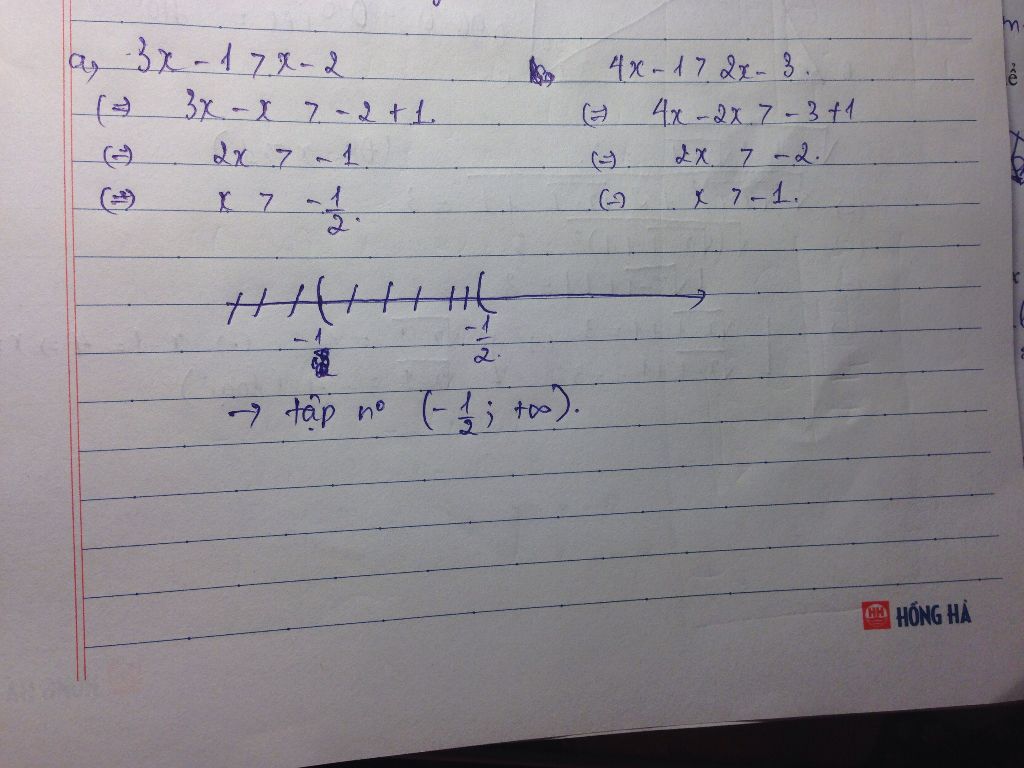 a, 3x - 1 > x - 2
(=) 3x - x > -2 + 1.
(=) 2x > -1
(=) x > -1/2.
4x - 1 > 2x - 3.
(=) 4x - 2x > -3 + 1
(=) 2x > -2.
(=) x > -1.
-1 -1/2.
→ tập nº (-1/2; +∞).
HỒNG HÀ